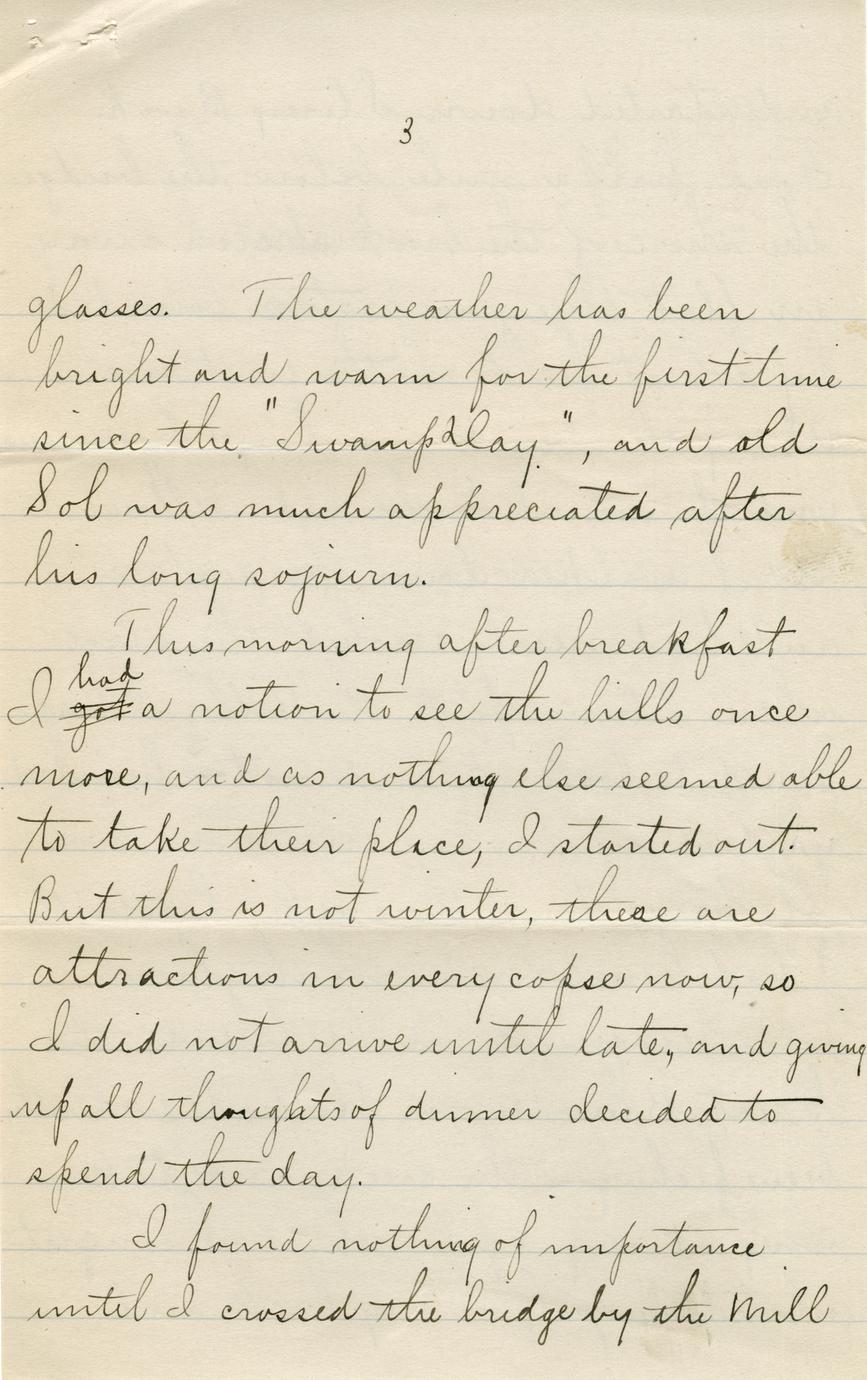 3
glasses. The weather has been
bright and warm for the first time
since the "Swamp Day", and old
Sol was much appreciated after
his long sojourn.
This morning after breakfast
had
I got a notion to see the hills once
more, and as nothing else seemed able
to take their place, I started out.
But this is not winter, there are
attractions in every copse now, so
I did not arrive until late, and giving
up all thoughts of dinner decided to
spend the day.
I found nothing of importance
until I crossed the bridge by the Mill